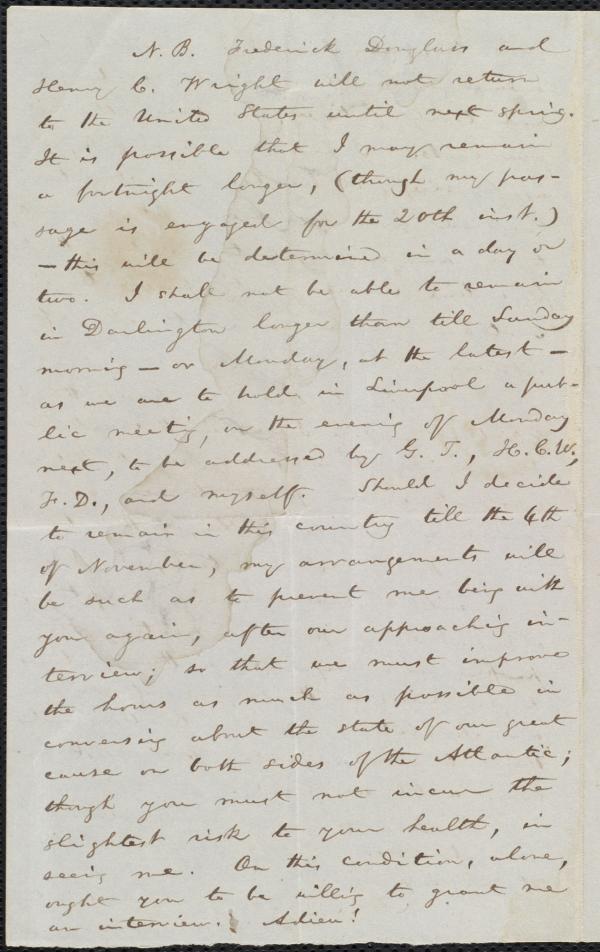 N. B. Frederick Douglass and
Henry C. Wright will not return
to the United States until next spring.
It is possible that I may remain
a fortnight longer, (though my pas-
sage is engaged for the 20th inst.)
— this will be determined in a day or
two. I shall not be able to remain
in Darlington longer than till Sunday
morning — or Monday, at the latest —
as we are to hold in Liverpool a pub-
lic meeting, on the evening of Monday
next, to be addressed by G. T., H. C. W.,
F. D., and myself. Should I decide
to remain in this country till the 4th
of November, my arrangements will
be such as to prevent me being with
you again, after our approaching in-
terview; so that we must improve
the hours as much as possible in
conversing about the state of our great
cause on both sides of the Atlantic;
though you must not incur the
slightest risk to your health, in
seeing me. On this condition, alone,
ought you to be willing to grant me
an interview. Adieu!